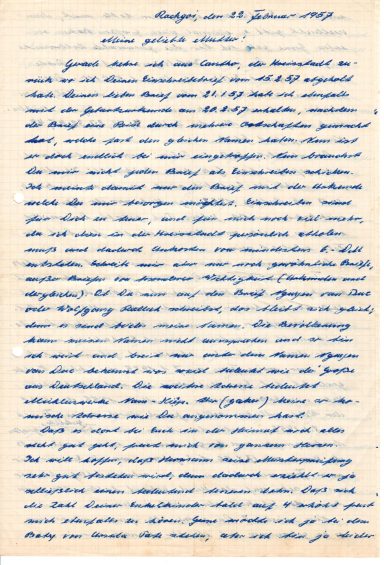 Rachgoi, den 22. Februar 1957
Meine geliebte Mutter!
Gerade kehre ich aus Cantho, der Kreisstadt zu-
rück wo ich Deinen Einschreibebrief vom 15.2.57 abgeholt
habe. Deinen lieben Brief vom 21.1.57 habe ich ebenfalls
mit der Geburtsurkunde am 20.2.57 erhalten, nachdem
der Brief eine Reise durch mehrere Ortschaften gemacht
hat, welche fast den gleichen Namen haben. Nun ist
er doch endlich bei mir eingetroffen. Nun brauchst
Du mir nicht jeden Brief als Einschreiben schicken.
Ich meinte damit nur den Brief mit der Urkunde
welche Du mir besorgen möchtest. Einschreiben sind
für Dich zu teuer, und für mich noch viel mehr,
da ich dies in der Kreisstadt persönlich abholen
muß und dadurch Unkosten von mindestens
entstehen. Schreibe mir aber nur noch gewöhnliche Briefe,
außer Briefe von besonderer Wichtigkeit (Urkunden und
dergleichen). Ob Du nun auf den Brief Nguyen van Duc
oder Wolfgang schreibst, das bleibt sich gleich;
denn es sind beides meine Namen. Die Bevölkerung
kann meinen Namen nicht aussprechen und so bin
ich weit und breit nur unter dem Namen Nguyen
van Duc bekannt was soviel bedeutet wie der Große
aus Deutschland. Die weitere Adresse bedeutet
keine so ko-
mische Adresse wie Du angenommen hast.
Daß es Euch in der Heimat noch alles
recht gut geht, freut mich von ganzem Herzen.
Ich will hoffen, daß seine Meisterprüfung
sehr gut bestehen wird, denn dadurch erzielt er ja
einen bedeutend höheren Lohn. Daß sich
die Zahl Deiner Enkelkinder bald auf 4 erhöht freut
mich ebenfalls zu hören. Gerne möchte ich ja bei dem
Baby von Ursula Pate stehen, aber ich bin ja leider